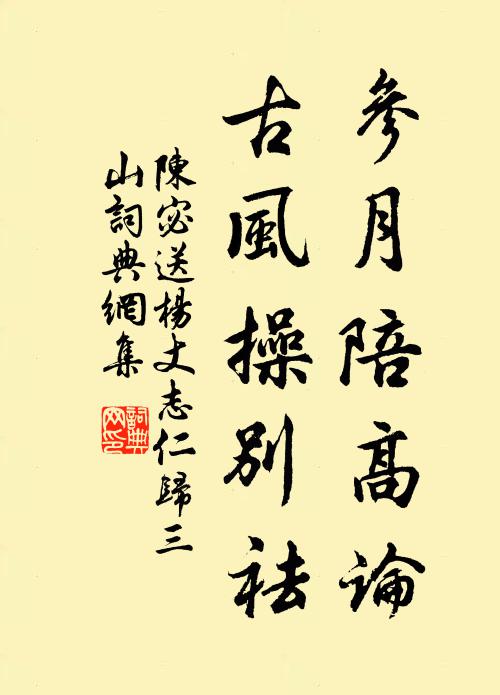 參月陪高論
古風操別袪
陳宓送楊丈志仁歸三
山詞典網集
詞典
网印